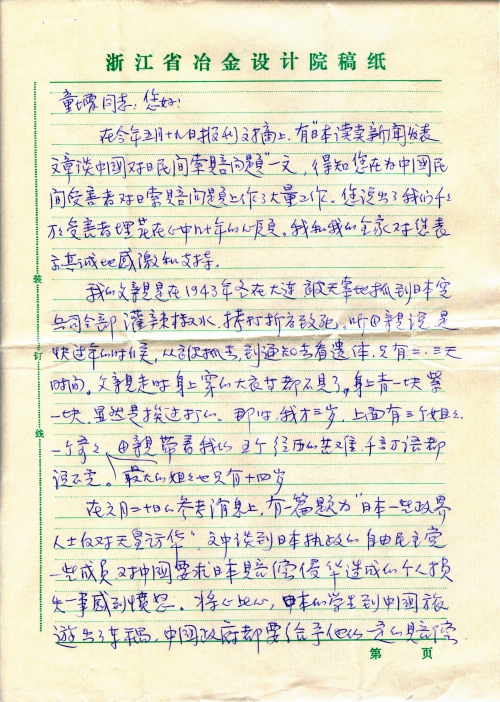 浙江省冶金设计院稿纸
童增同志：您好！
在今年五月十九日报刊文摘上，有"日本读卖新闻发表
文章谈中国对日民间索赔问题"一文，得知您在为中国民
间受害者对日索赔问题上作了大量工作。您说出了我们千
万受害者埋在心中几十年的心愿。我和我的全家对您表
示真诚地感激和支持。
我的父亲是在1943年冬在大连被无辜地抓到日本宪
兵司令部灌辣椒水，拷打折磨致死。听母亲说，是
快过年的时候，从被抓去，到通知去看遗体，只有二、三天
时间。父亲走时身上穿的大衣等都不见了，身上青一块紫
一块，显然是挨过打的。那时，我才三岁，上面有三个姐姐，
一个哥哥，母亲带着我们五个经历的苦难，千言万语都
说不完。最大的姐姐也只有十四岁
在六月二十日的参考消息上，有一篇题为"日本一些政界
人士反对天皇访华"，文中谈到日本执政的自由民主党
一些成员对中国要求日本赔偿侵华造成的个人损
失一事感到愤怒。将心比心，日本的学生到中国旅
游出了车祸，中国政府都要给予他们一定的赔偿
装
订
线
第 页